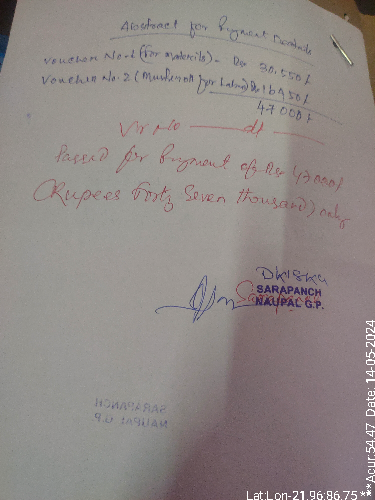 Abstract for Payment Details
Voucher No-1 (For materials) - Rs 30,550/-
Voucher No. 2 (Muster roll for Labour) Rs 16450/-
47000/-
Vr No ——— dt ———
Passed for Payment of Rs 47000/-
(Rupees Forty Seven thousand) only
DKISKU
Sarapanch
SARAPANCH
NAUPAL G.P.
SARAPANCH
NAUPAL G.P.
Lat:Lon-21.96:86.75 ***Acur:54.47 Date: 14-05-2024